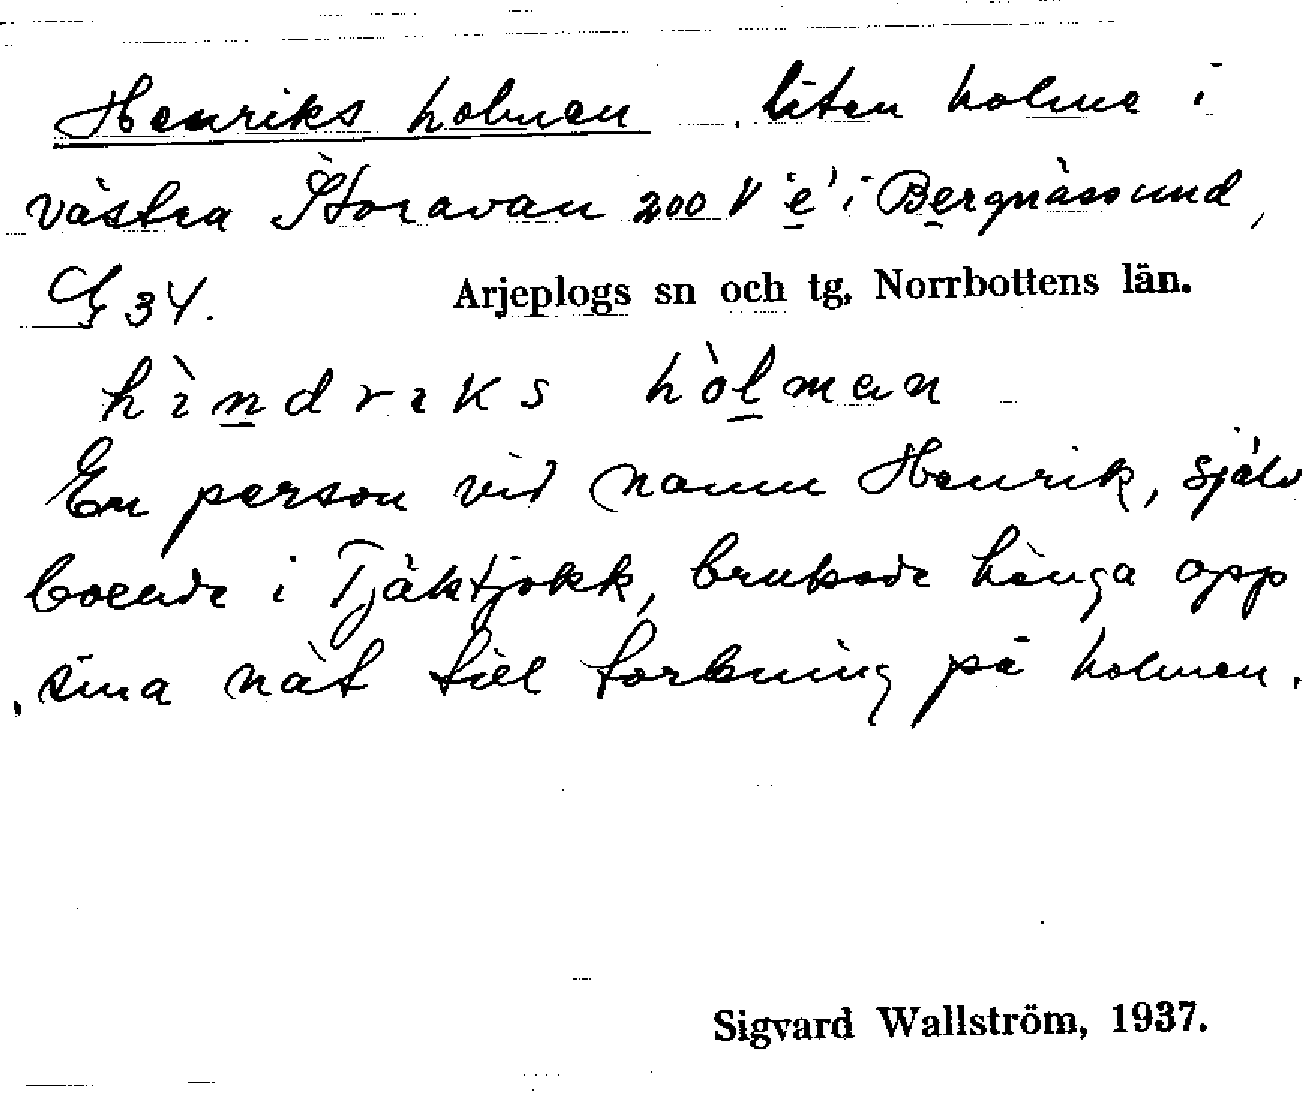 Henriks holmen, liten holme i
västra Storavan 200 V 'e' i Bergnässund,
G 34. Arjeplogs sn och tg. Norrbottens län.
hìndrıks hòlman
En person vid namn Henrik, själv
boende i Tjäktjokk, brukade hänga opp
sina nät till torkning på holmen.
Sigvard Wallström, 1937.